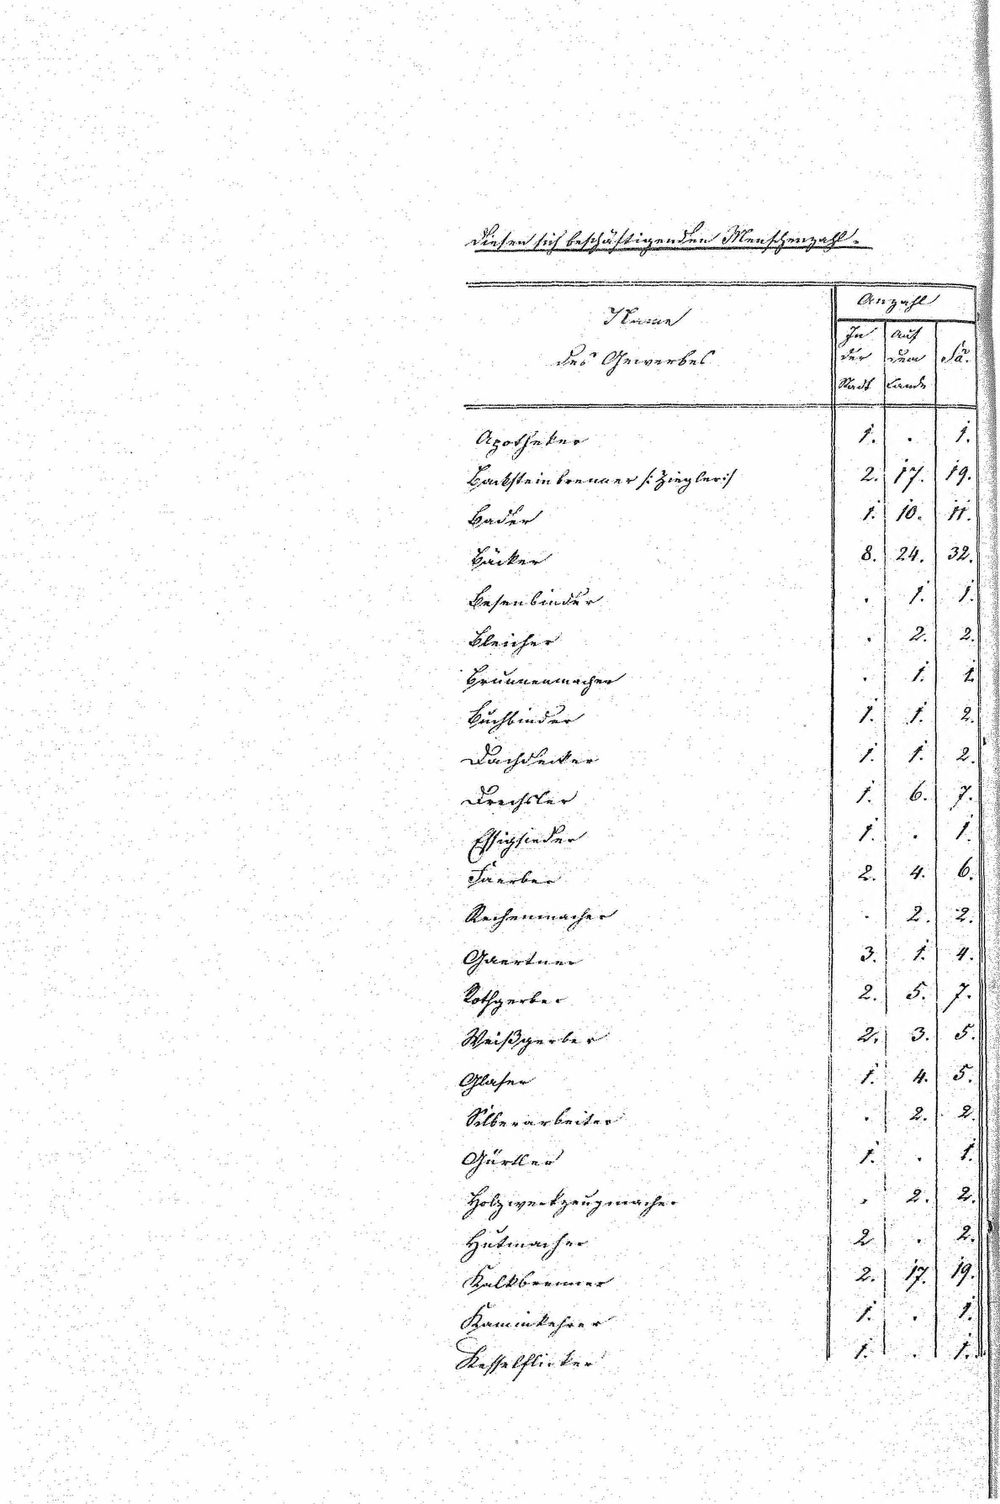 diesen sich beschäftigenden Menschenzahl.
Anzahl
Name
des Gewerbes
In der Stadt
Auf dem Lande
Sa.
Apotheker 1. . 1.
Backsteinbrenner /: Ziegler :/ 2. 17. 19.
Bader 1. 10. 11.
Bäcker 8. 24. 32.
Besenbinder . 1. 1.
Bleicher . 2. 2.
Brunnenmacher . 1. 1.
Buchbinder 1. 1. 2.
Dachdecker 1. 1. 2.
Drechsler 1. 6. 7.
Essigsieder 1. . 1.
Faerber 2. 4. 6.
Rechenmacher . 2. 2.
Gaertner 3. 1. 4.
Rothgerber 2. 5. 7.
Weißgerber 2. 3. 5.
Glaser 1. 4. 5.
Silberarbeiter . 2. 2.
Gürtler 1. . 1.
Holzwerkzeugmacher . 2. 2.
Hutmacher 2 . 2.
Kalkbrenner 2. 17. 19.
Kaminkehrer 1. . 1.
Kesselflicker 1. . 1.